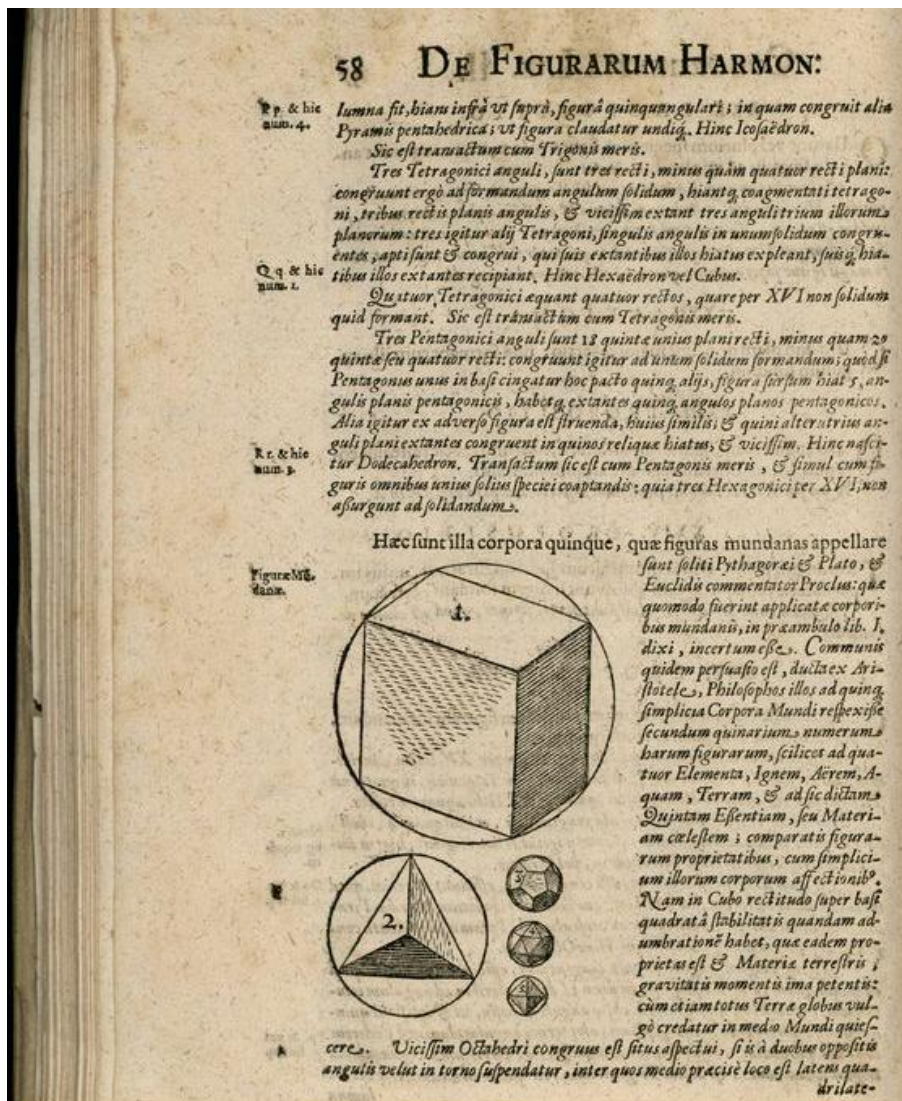 58 DE FIGURARUM HARMON:
P p. & hic
num. 4.
lumna fit, hians infrà vt suprà, figurâ quinquangulari; in quam congruit alia
Pyramis pentahedrica; vt figura claudatur undiq́. Hinc Icosaëdron.
Sic est transactum cum Trigonis meris.
Tres Tetragonici anguli, sunt tres recti, minus quàm quatuor recti plani:
congruunt ergò ad formandum angulum solidum, hiantq́ coagmentati tetrago-
ni, tribus rectis planis angulis, & vicissim extant tres anguli trium illorum
planorum: tres igitur alij Tetragoni, singulis angulis in unum solidum congru-
entes, apti sunt & congrui, qui suis extantibus illos hiatus expleant, suisq́ hia-
Q q. & hic
num. 1.
tibus illos extantes recipiant. Hinc Hexaëdron vel Cubus.
Quatuor Tetragonici æquant quatuor rectos, quare per XVI non solidum
quid formant. Sic est trànsactum cum Tetragonis meris.
Tres Pentagonici anguli sunt 18 quintæ unius plani recti, minus quam 20
quintæ seu quatuor recti: congruunt igitur ad unum solidum formandum; quod si
Pentagonus unus in basi cingatur hoc pacto quinq́ alijs, figura sursum hiat 5, an-
gulis planis pentagonicis, habetq́ extantes quinq́ angulos planos pentagonicos.
Alia igitur ex adverso figura est struenda, huius similis; & quini alterutrius an-
guli plani extantes congruent in quinos reliquæ hiatus, & vicissim. Hinc nasci-
R r. & hic
num. 3.
tur Dodecahedron. Transactum sic est cum Pentagonis meris, & simul cum fi-
guris omnibus unius solius speciei coaptandis: quia tres Hexagonici per XVI, non
assurgunt ad solidandum.
Hæc sunt illa corpora quinque, quæ figuras mundanas appellare
Figuræ Mũ-
danæ.
sunt soliti Pythagoræi & Plato, &
Euclidis commentator Proclus: quæ
quomodo fuerint applicatæ corpori-
bus mundanis, in præambulo lib. I.
dixi, incertum esse. Communis
quidem persuasio est, ducta ex Ari-
stotele, Philosophos illos ad quinq́
simplicia Corpora Mundi respexisse
secundum quinarium numerum
harum figurarum, scilicet ad qua-
tuor Elementa, Ignem, Aërem, A-
quam, Terram, & ad sic dictam
Quintam Essentiam, seu Materi-
am cœlestem; comparatis figura-
rum proprietatibus, cum simplici-
um illorum corporum affectionibꝰ.
Nam in Cubo rectitudo super basi
quadratâ stabilitatis quandam ad-
umbrationẽ habet, quæ eadem pro-
prietas est & Materiæ terrestris,
gravitatis momentis ima petentis:
cùm etiam totus Terræ globus vul-
gò credatur in medio Mundi quies-
cere. Vicissim Octahedri congruus est situs aspectui, si is à duobus oppositis
angulis velut in torno suspendatur, inter quos medio præcisè loco est latens qua-
drilate-
1.
2.